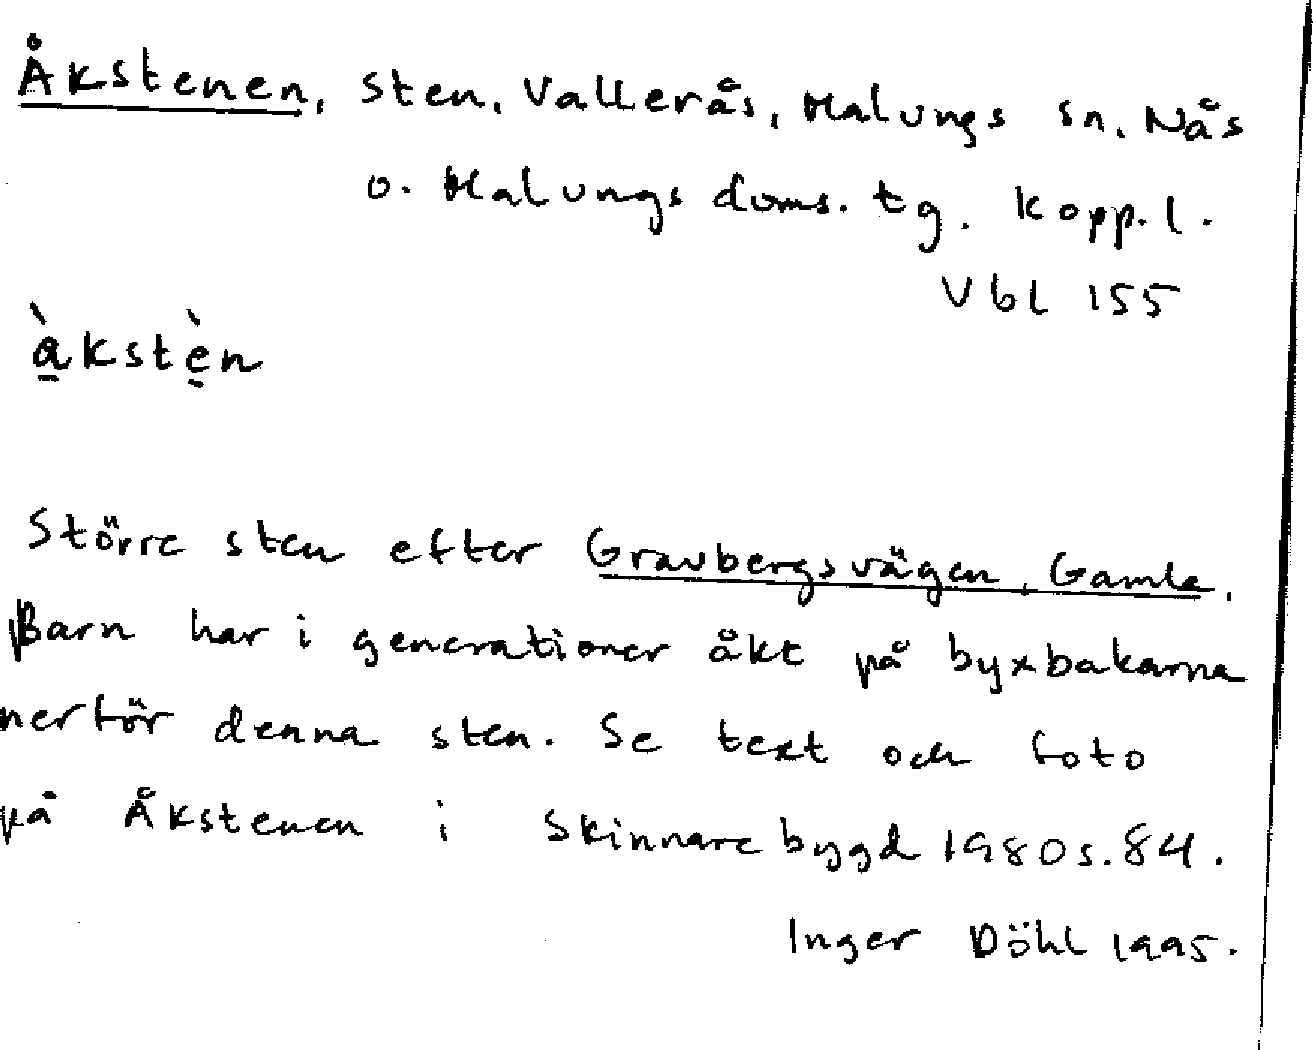 Åkstenen, sten, Vallerås, Malungs sn, Nås
o. Malungs doms. tg. Kopp. l.
Vbl 155
à̱kstè̱n
Större sten efter Gravbergsvägen, Gamla.
Barn har i generationer åkt på byxbakarna
nerför denna sten. Se text och foto
på Åkstenen i Skinnarebygd 1980 s. 84.
Inger Döhl 1995.